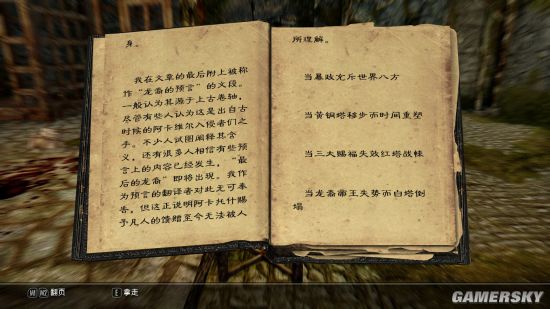 身。
我在文章的最后附上被称
作“龙裔的预言”的文段。
一般认为其源于上古卷轴，
尽管有些人认为这是出自古
时候的阿卡维尔入侵者们之
手。不少人试图阐释其含
义，还有很多人相信有些预
言上的内容已经发生，“最
后的龙裔”即将出现。我作
为预言的翻译者对此无可奉
告，但这正说明阿卡托什赐
予凡人的馈赠至今无法被人
所理解。
当暴政充斥世界八方
当黄铜塔移步而时间重塑
当三大赐福失效红塔战栗
当龙裔帝王失势而白塔倒
塌
翻页
E 拿走
GAMERSKY